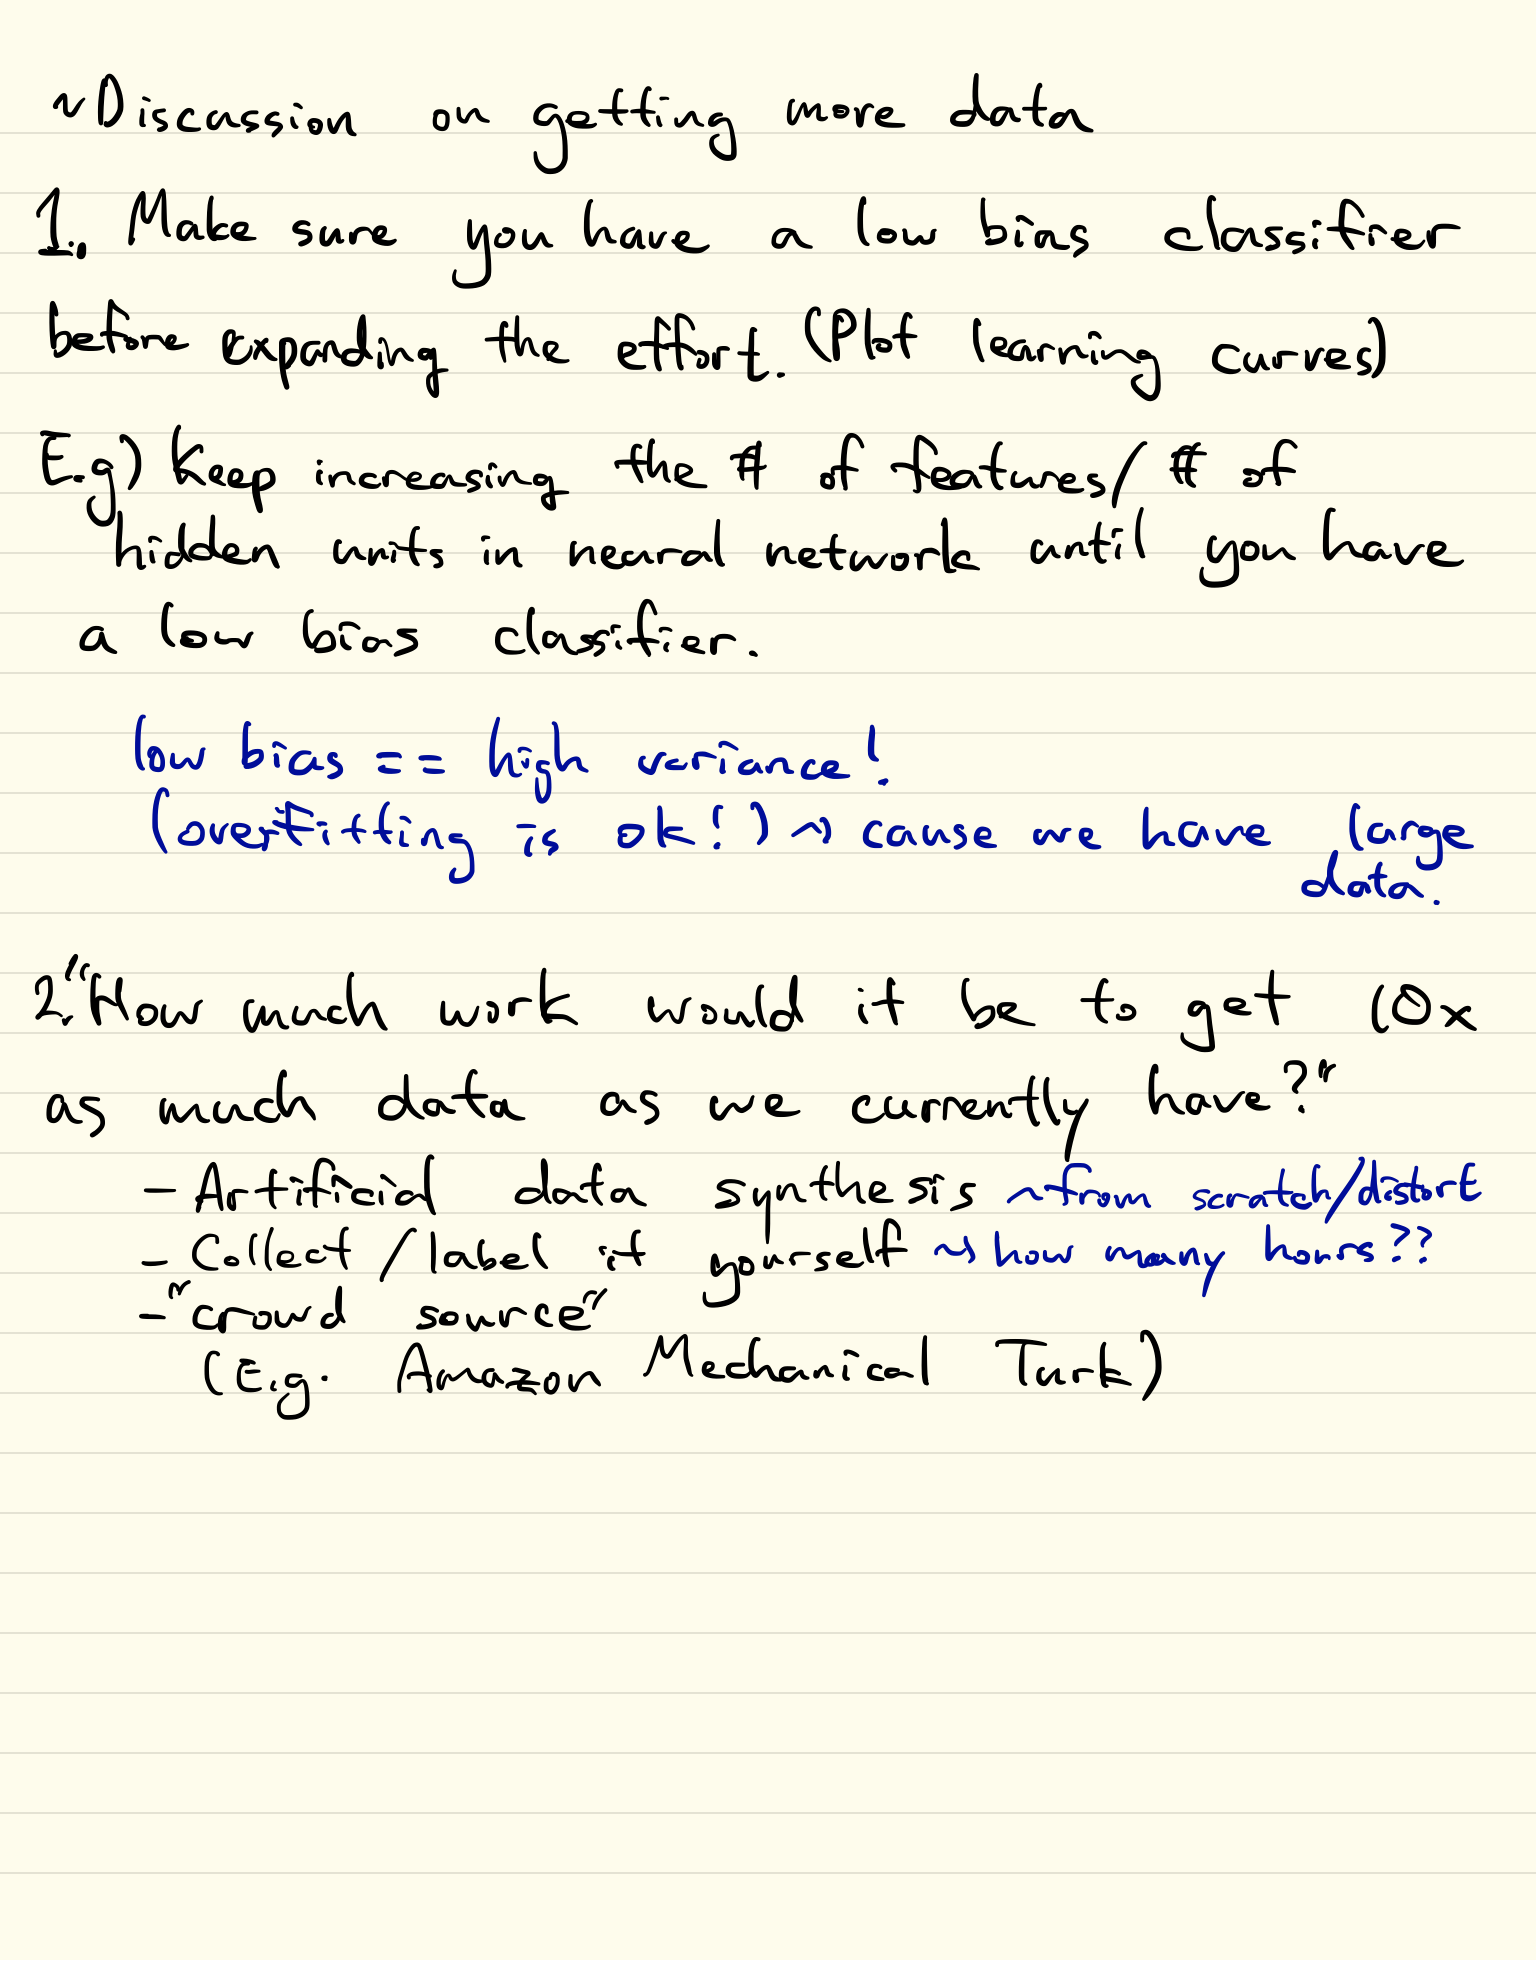 ~Discussion on getting more data
1. Make sure you have a low bias classifier
before expanding the effort. (Plot learning curves)
E.g) Keep increasing the # of features/ # of
hidden units in neural network until you have
a low bias classifier.
low bias == high variance!
(overfitting is ok!) ~> cause we have large
data.
2. "How much work would it be to get 10x
as much data as we currently have?"
- Artificial data synthesis ~from scratch/distort
- Collect /label it yourself ~> how many hours??
- "crowd source"
(E.g. Amazon Mechanical Turk)